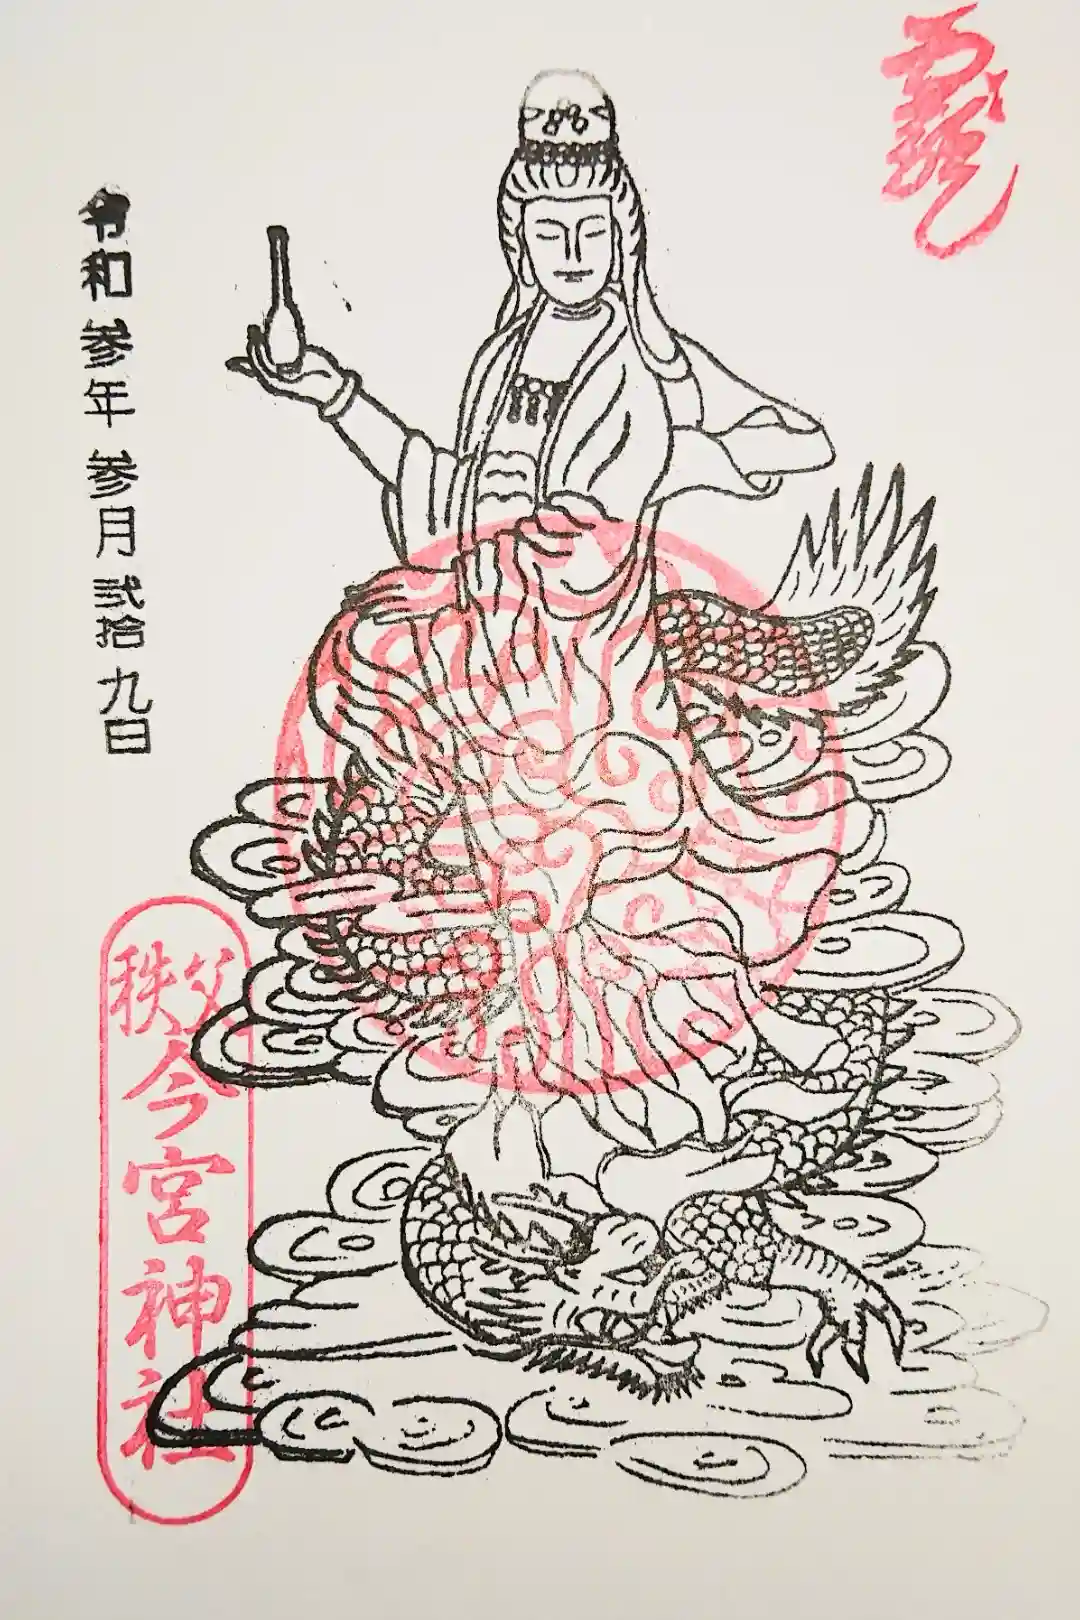 龍
令和参年参月弐拾九日
秩父
今宮神社